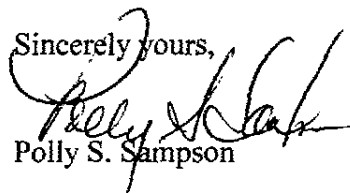 Sincerely yours,
Polly S Sampson
Polly S. Sampson